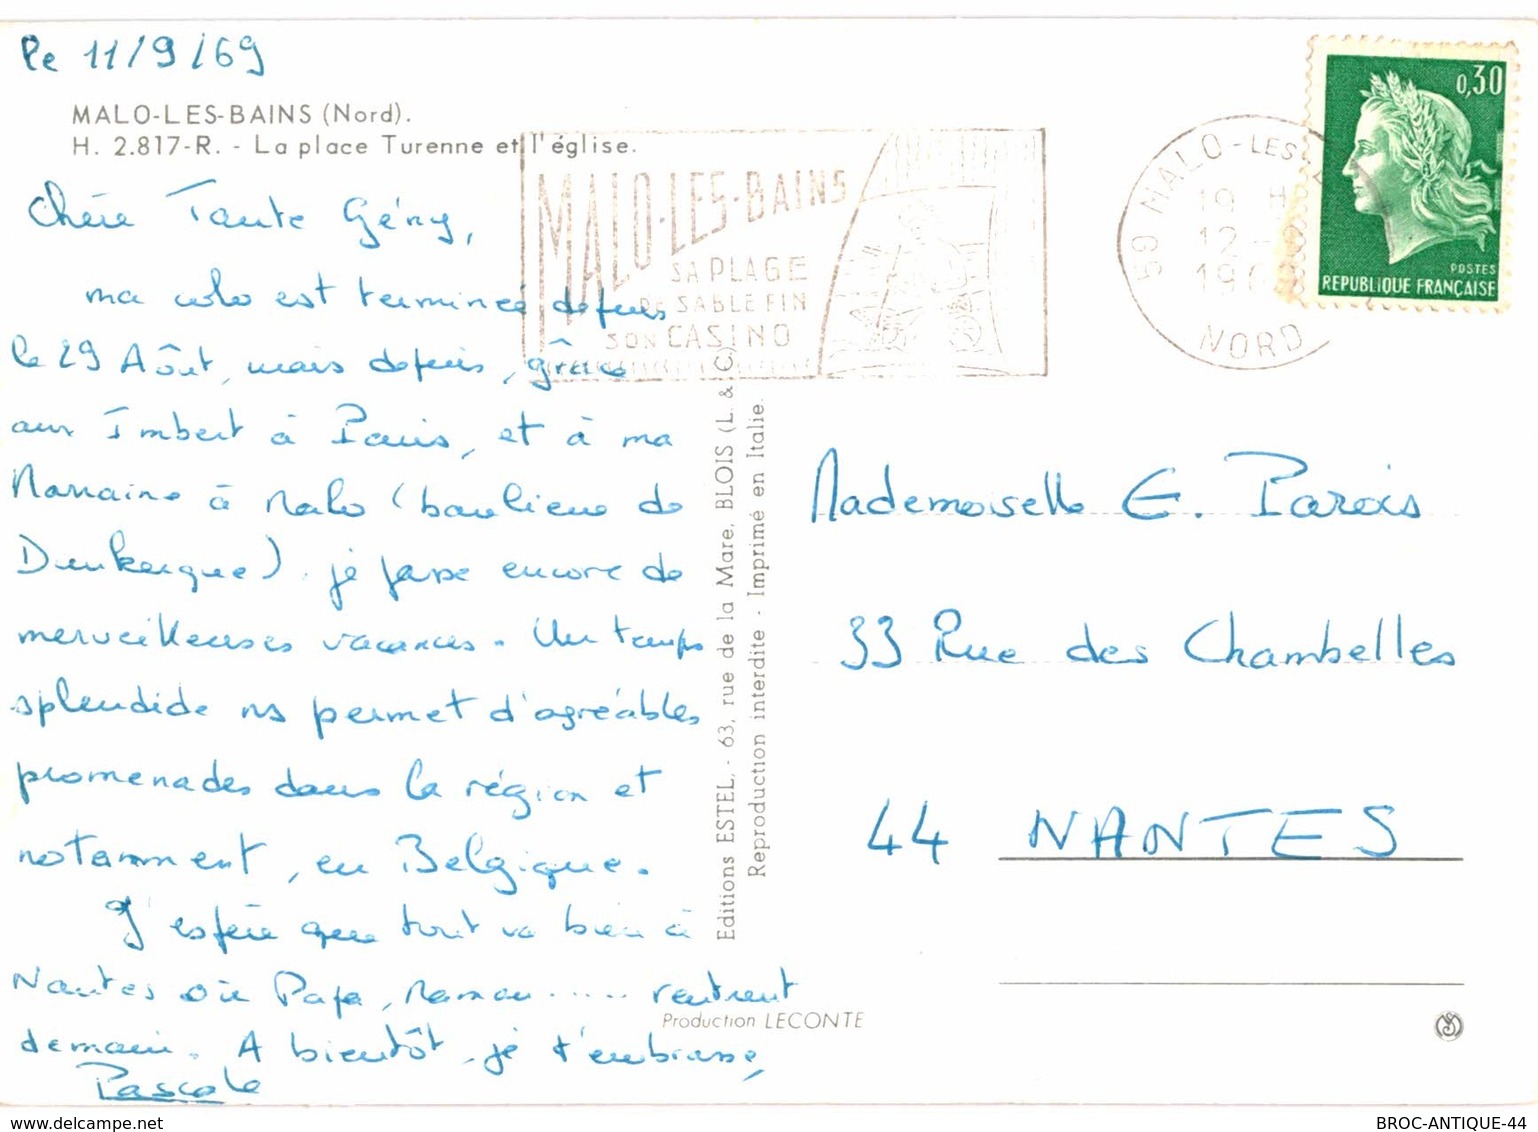 Le 11/9/69
MALO-LES-BAINS (Nord).
H. 2.817-R. - La place Turenne et l'église.
Chère Tante Gény,
ma colo est terminée depuis
le 29 Août, mais depuis, grâce
aux Imbert à Paris, et à ma
Marraine à Malo (banlieue de
Dunkerque). je passe encore de
merveilleuses vacances. Un temps
splendide ns permet d'agréables
promenades dans la région et
notamment, en Belgique.
J'espère que tout va bien à
Nantes où Papa, Maman ..... rentrent
demain. A bientôt, je t'embrasse,
Pascale
MALO-LES-BAINS
SA PLAGE
DE SABLE FIN
SON CASINO
59 MALO-LES-
19 H
12 -
196
NORD
0,30
POSTES
REPUBLIQUE FRANÇAISE
Editions ESTEL. - 63, rue de la Mare, BLOIS (L. & C.)
Reproduction interdite - Imprimé en Italie.
Mademoiselle E. Parois
33 Rue des Chambelles
44 NANTES
Production LECONTE
delcampe.net
BROC-ANTIQUE-44